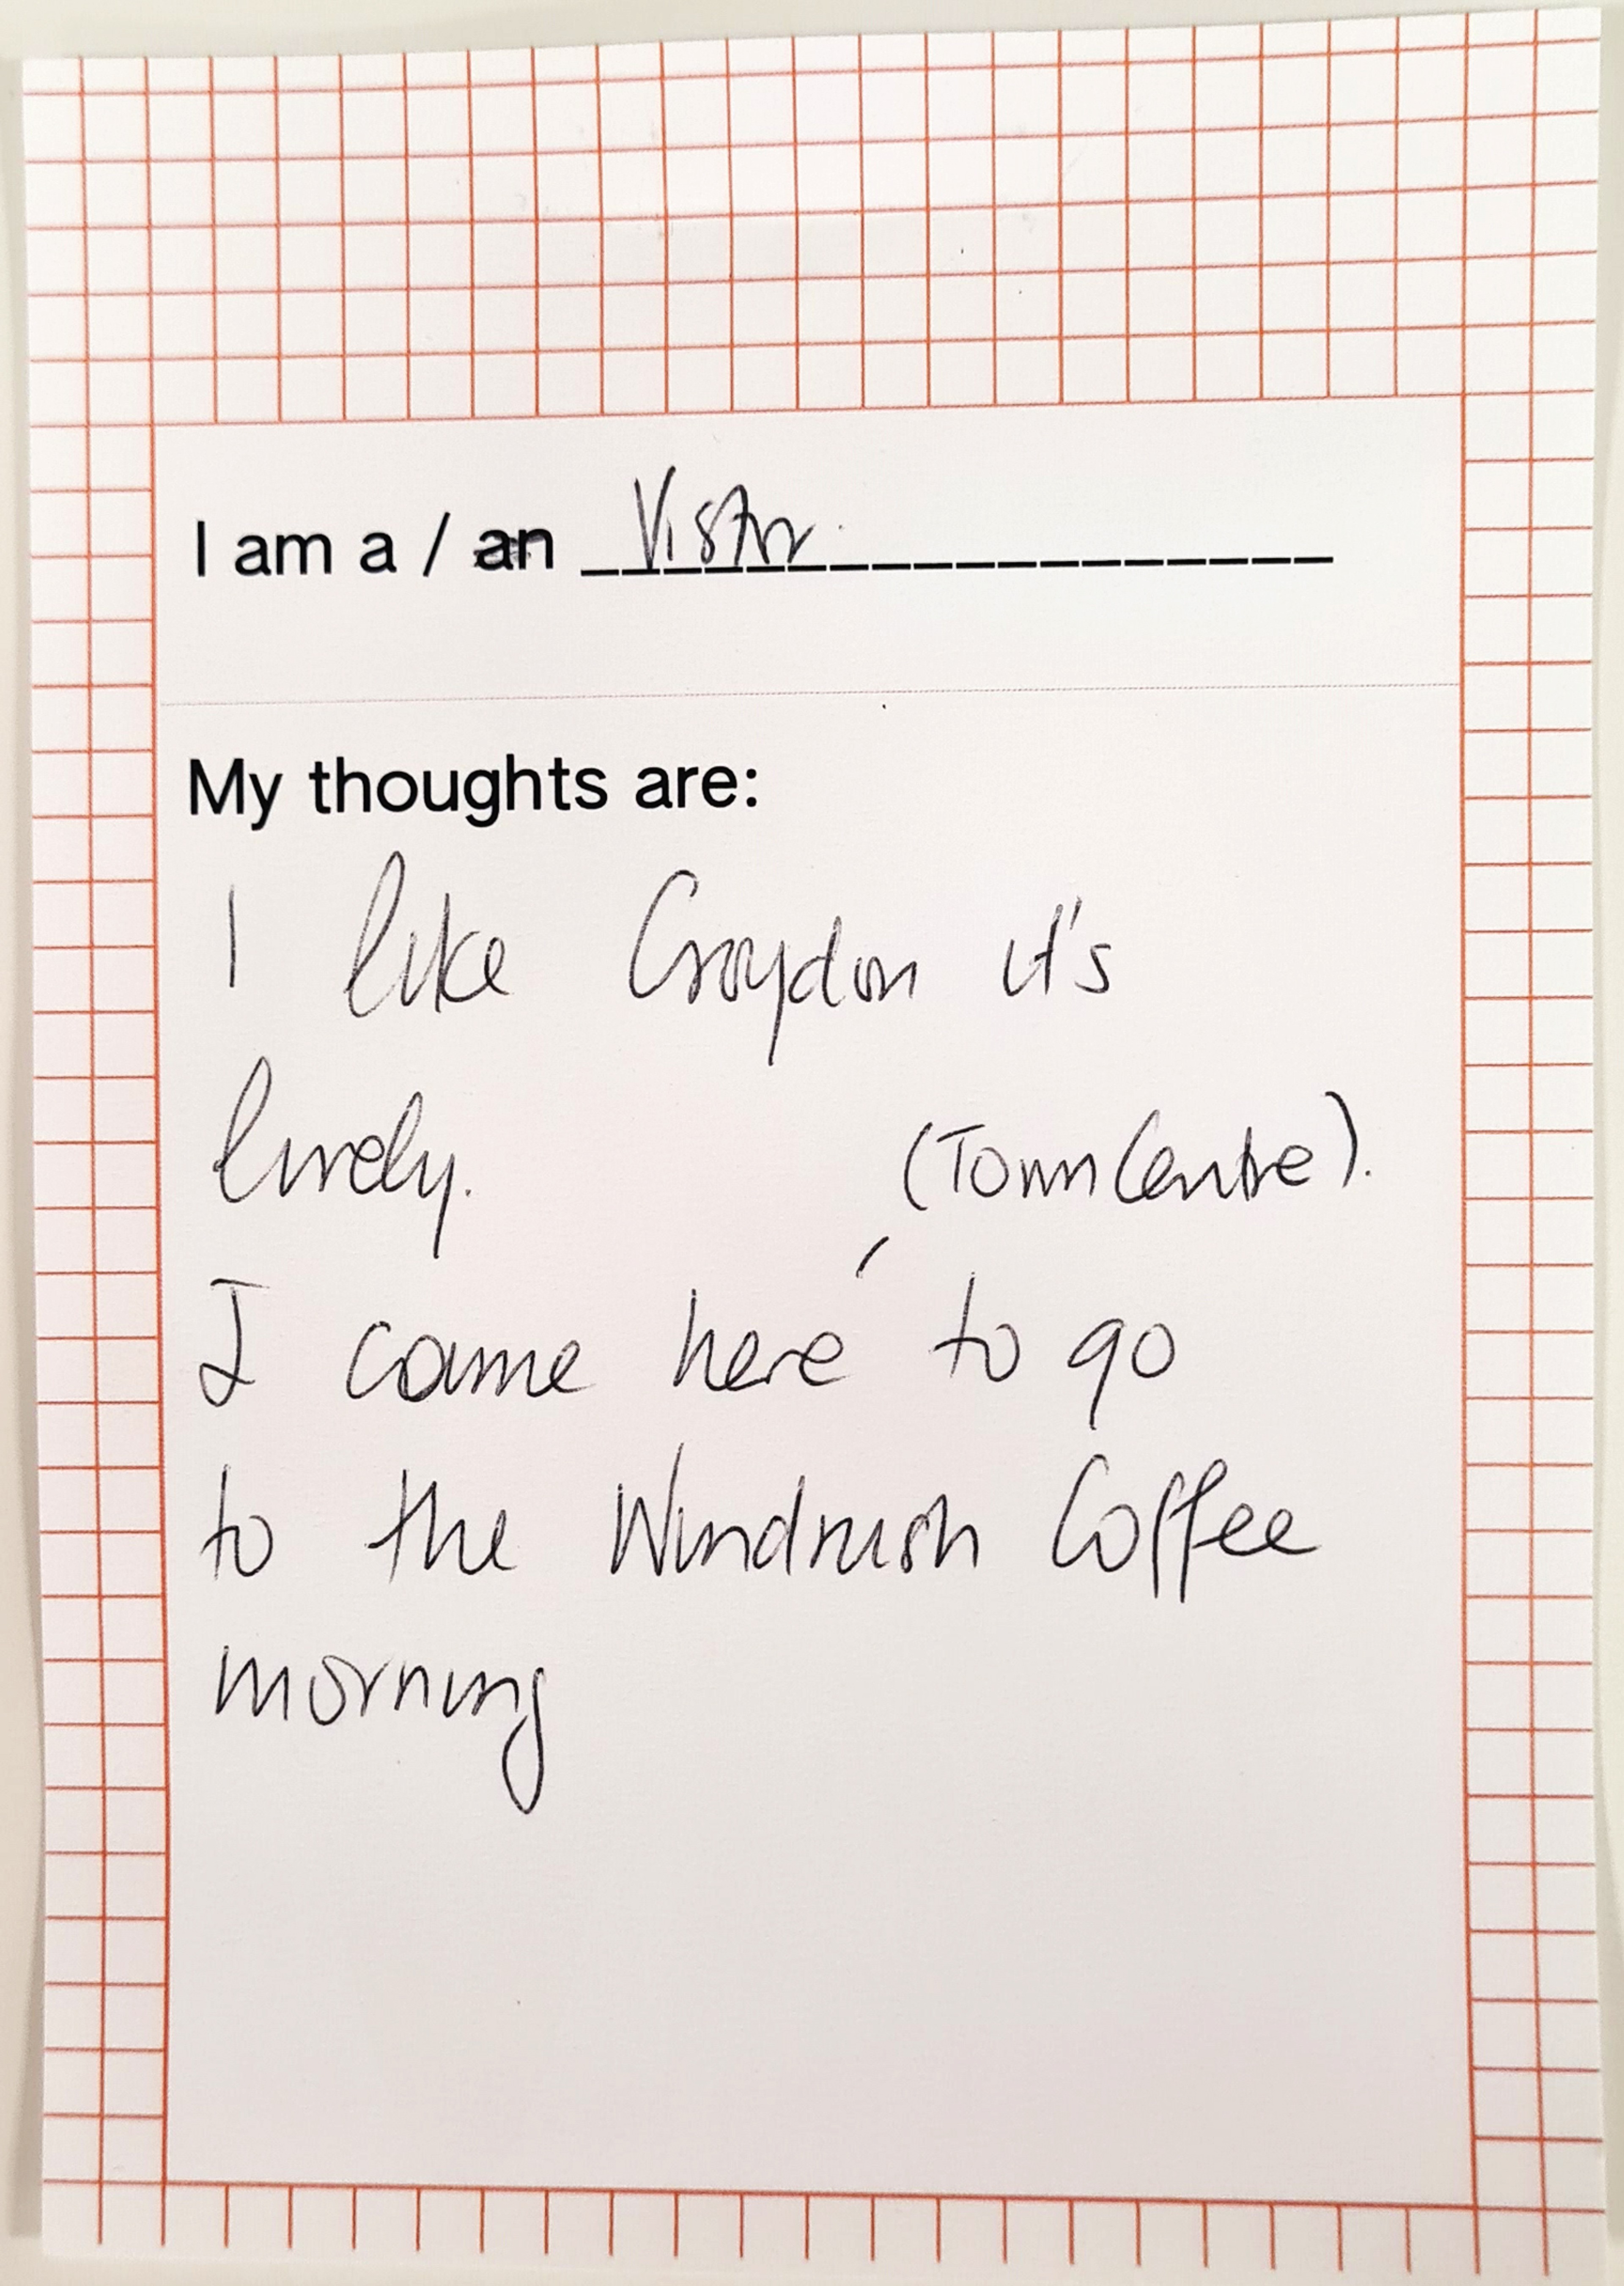 I am a / an Vistor
My thoughts are:
I like Croydon it's
lively.
(Town Centre).
I came here to go
to the Windrush Coffee
morning